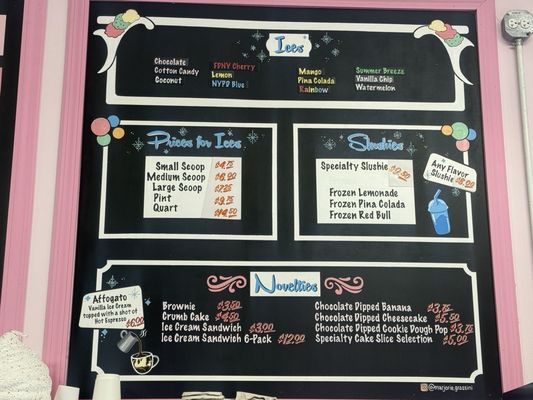 Ices
Chocolate
Cotton Candy
Coconut
FDNY Cherry
Lemon
NYPD Blue
Mango
Pina Colada
Rainbow
Summer Breeze
Vanilla Chip
Watermelon
Prices for Ices
Small Scoop
Medium Scoop
Large Scoop
Pint
Quart
Slushies
Specialty Slushie
Frozen Lemonade
Frozen Pina Colada
Frozen Red Bull
Any Flavor
Slushie
Novelties
Affogato
Vanilla Ice Cream
topped with a shot of
Hot Espresso
$6.00
Brownie $3.50
Crumb Cake $4.50
Ice Cream Sandwich $3.00
Ice Cream Sandwich 6-Pack $12.00
Chocolate Dipped Banana $3.75
Chocolate Dipped Cheesecake $5.50
Chocolate Dipped Cookie Dough Pop $3.75
Specialty Cake Slice Selection $5.00
@marjorie.grassini